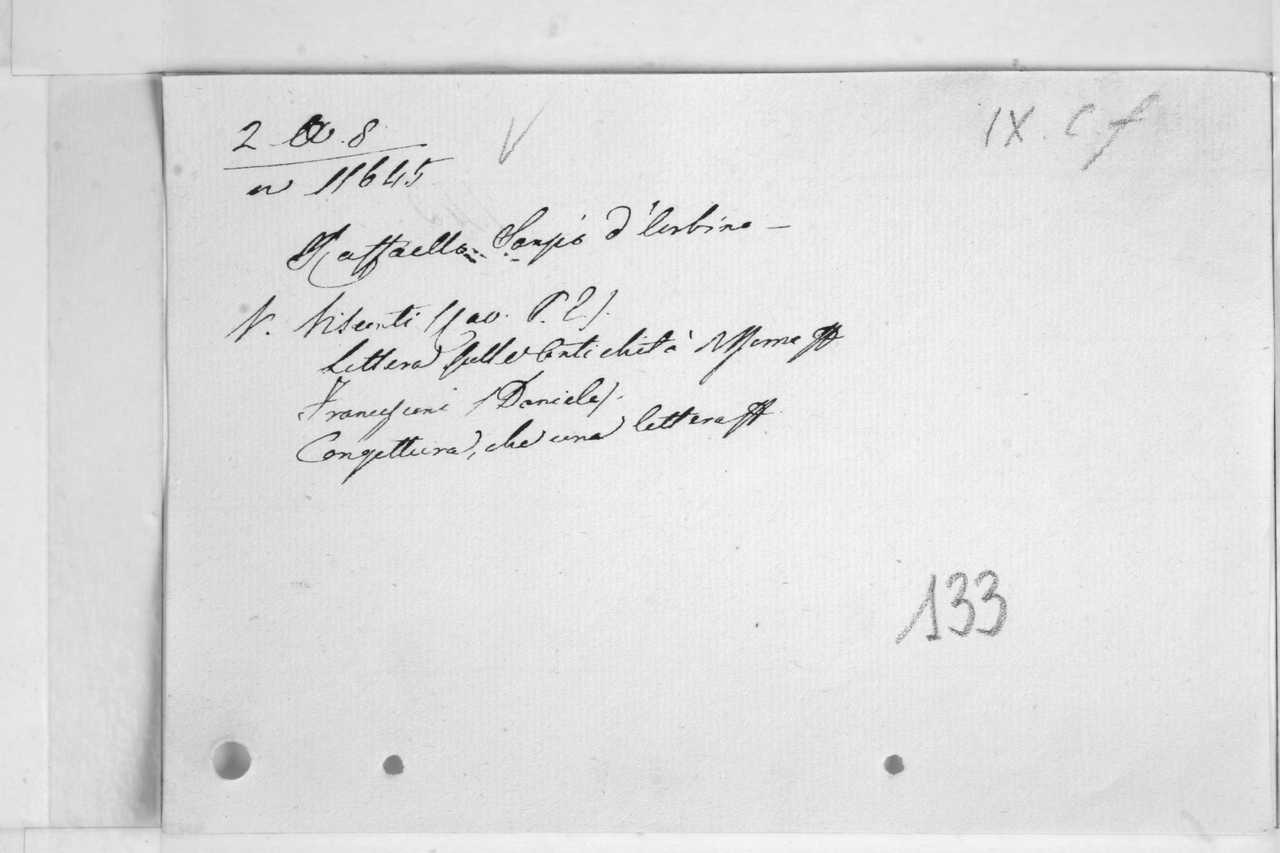 2 8
IX. C. f
n 11645
Raffaello Sanzio d'Urbino —
V. Visconti P. E.).
Lettera sulle Antichità Roma
Francesconi (Daniele).
Congettura, che una lettera
133